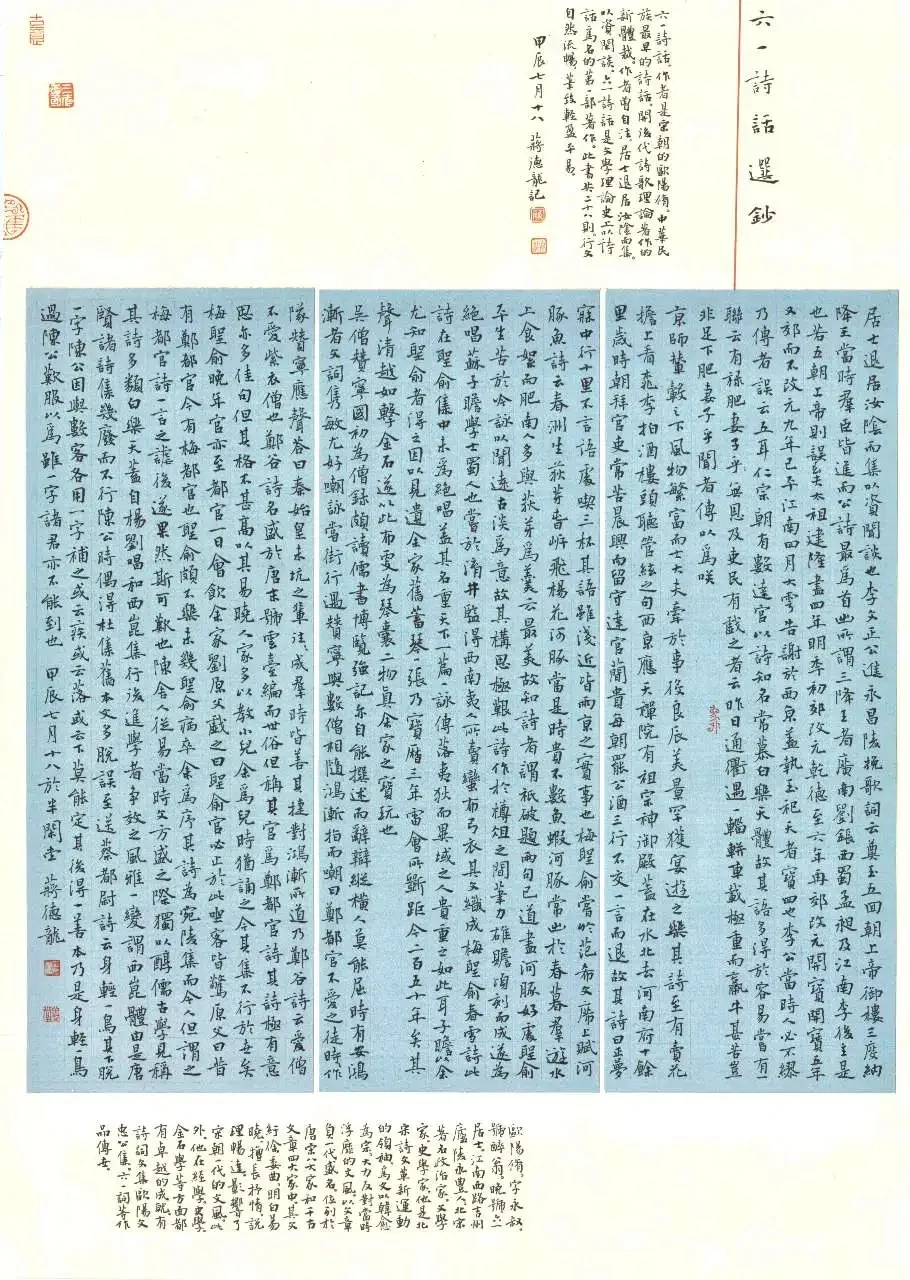 六一詩話選鈔
六一詩話，作者是宋朝的歐陽脩。中華民
族最早的詩話，開後代詩歌理論著作的
新體裁。作者曾自法居士退居汝陰而集，
以資閒談。六一詩話是文學理論史上以詩
話爲名的第一部著作。此書共二十八則，行文
自然流暢，筆致輕盈平易
甲辰七月十八 蔣德龍記
居士退居汝陰而集以資閒談也李文正公進永昌陵挽歌詞云奠玉五回朝上帝御樓三度納
降王當時羣臣皆進而公詩最爲首出所謂三降王者廣南劉鋹西蜀孟昶及江南李後主是
也若五朝上帝則誤矣太祖建隆盡四年明年初郊改元乾德至六年再郊改元開寶開寶五年
又郊而不改元九年已平江南四月大雩告謝於西京蓋執玉祀天者實四也李公當時人必不繆
乃傳者誤云五耳仁宗朝有數達官以詩知名常慕白樂天體故其語多得於容易嘗有一
聯云有祿肥妻子無恩及吏民有戲之者云昨日通衢遇一輜軿車載極重而羸牛甚苦豈
非足下肥妻子乎聞者傳以爲咲
京師輦轂之下風物繁富而士大夫牽於事役良辰美景罕獲宴遊之樂其詩至有賣花
擔上看桃李拍酒樓頭聽管絃之句西京應天禪院有祖宗神御殿蓋在水北去河南府十餘
里歲時朝拜官吏常苦晨興而留守達官簡貴每朝罷公酒三行不交一言而退故其詩曰正夢
寐中行十里不言語處喫三杯其語雖淺近皆兩京之實事也梅聖俞嘗於范希文席上賦河
豚魚詩云春洲生荻芽春岸飛楊花河豚當是時貴不數魚蝦河豚常出於春暮羣遊水
上食絮而肥南人多與荻芽爲羹云最美故知詩者謂衹破題兩句已道盡河豚好處聖俞
平生苦於吟詠以閒遠古淡爲意故其構思極艱此詩作於樽俎之間筆力雄贍頃刻而成遂爲
絕唱蘇子瞻學士蜀人也嘗於淯井監得西南夷人所賣蠻布弓衣其文織成梅聖俞春雪詩此
詩在聖俞集中未爲絕唱蓋其名重天下一篇一詠傳落夷狄而異域之人貴重之如此耳子瞻以余
尤知聖俞者得之因以見遺余家舊蓄琴一張乃寶曆三年雷會所斲距今二百五十年矣其
聲清越如擊金石遂以此布更爲琴囊二物真余家之寶玩也
吳僧贊寧國初爲僧錄頗讀儒書博覽強記亦自能撰述而辭辯縱橫人莫能屈時有安鴻
漸者文詞雋敏尤好嘲詠嘗街行遇贊寧與數僧相隨鴻漸指而嘲曰鄭都官不愛之徒時時作
隊贊寧應聲答曰秦始皇未坑之輩法成羣時皆善其捷對鴻漸所道乃鄭谷詩云愛僧
不愛紫衣僧也鄭谷詩名盛於唐末號雲臺編而世俗但稱其官爲鄭都官詩其詩極有意
思亦多佳句但其格不甚高以其易曉人家多以教小兒余爲兒時猶誦之今其集不行於世矣
梅聖俞晚年官亦至都官一日會飲余家劉原父戲之曰聖俞官必止於此坐客皆驚原父曰昔
有鄭都官今有梅都官也聖俞頗不樂未幾聖俞病卒余爲序其詩爲宛陵集而今人但謂之
梅都官詩一言之謔後遂果然斯可歎也陳舍人從易當時文方盛之際獨以醇儒古學見稱
其詩多類白樂天蓋自楊劉唱和西崑集行後進學者爭效之風雅一變謂西崑體由是唐
賢諸詩集幾廢而不行陳公時偶得杜集舊本文多脫誤至送蔡都尉詩云身輕一鳥其下脫
一字陳公因與數客各用一字補之或云疾或云落或云下莫能定其後得一善本乃是身輕一鳥
過陳公歎服以爲雖一字諸君亦不能到也 甲辰七月十八於半閑堂 蔣德龍
歐陽脩，字永叔，
號醉翁，晚號六一
居士，江南西路吉州
廬陵永豐人，北宋
著名政治家、文學
家、史學家。他是北
宋詩文革新運動
的領袖，爲文以韓愈
爲宗，大力反對當時
浮靡的文風，以文章
負一代盛名，位列於
唐宋八大家和千古
文章四大家中。其文
紆徐委曲，明白易
曉，擅長抒情，說
理暢達，影響了
宋朝一代的文風。此
外，他在經學、史學、
金石學等方面都
有卓越的成就。有
詩詞文集歐陽文
忠公集、六一詞等作
品傳世。